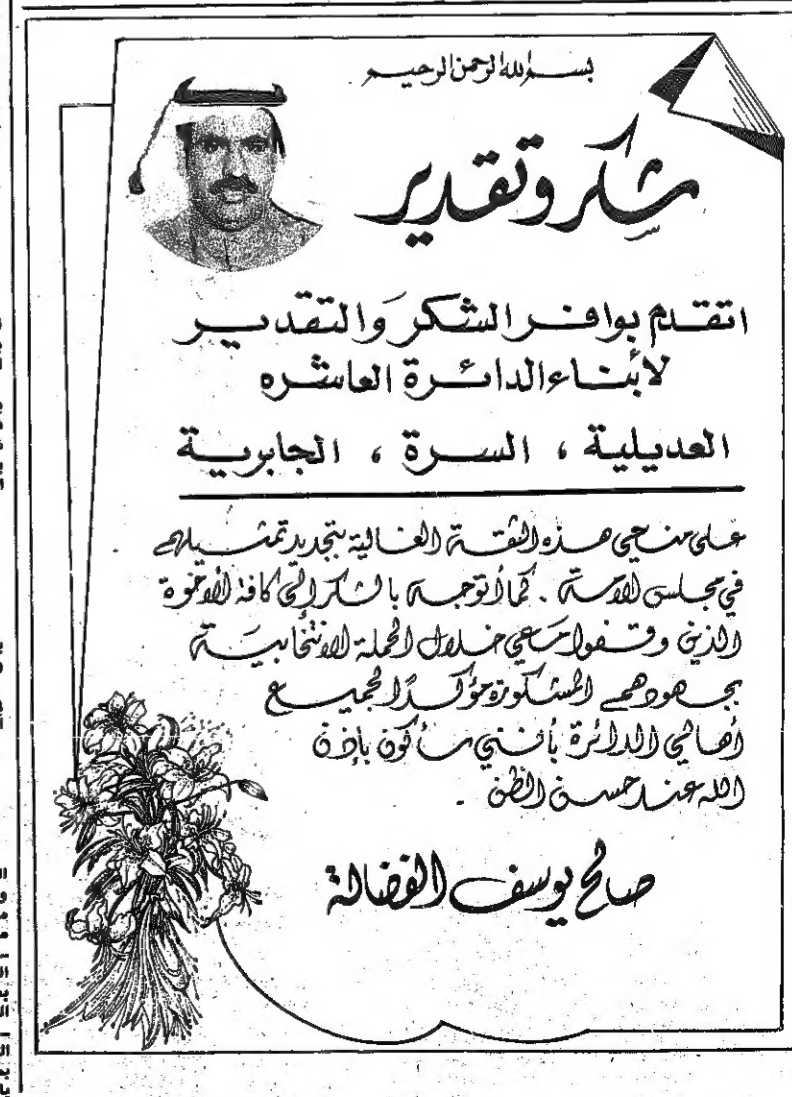 بسم الله الرحمن الرحيم
شكر وتقدير
اتقدم بوافر الشكر وَالتقدير
لأبناء الدائرة العاشره
العديلية ، السرة ، الجابرية
على منحي هذه الثقة الغالية بتجديد تمثيلهم
في مجلس الامة . كما أتوجه بالشكر إلى كافة الأخوة
الذين وقفوا معي خلال الحملة الانتخابية
بجهودهم المشكورة مؤكدًا لجميع
أهالي الدائرة بأنني سأكون بإذن
الله عند حسن الظن .
صالح يوسف الفضالة